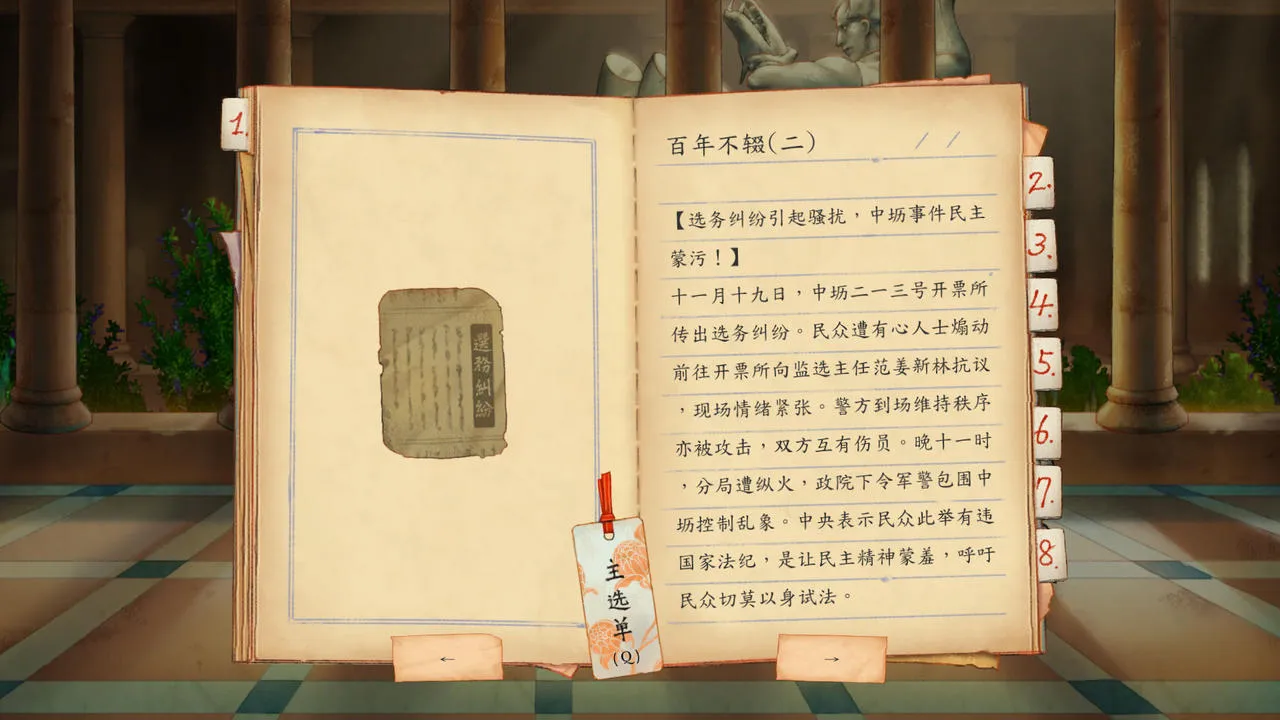 1.
選務糾紛
主选单
(Q)
←
百年不辍(二)
【选务纠纷引起骚扰,中坜事件民主
蒙污!】
十一月十九日,中坜二一三号开票所
传出选务纠纷。民众遭有心人士煽动
前往开票所向监选主任范姜新林抗议
,现场情绪紧张。警方到场维持秩序
亦被攻击,双方互有伤员。晚十一时
,分局遭纵火,政院下令军警包围中
坜控制乱象。中央表示民众此举有违
国家法纪,是让民主精神蒙羞,呼吁
民众切莫以身试法。
→
2.
3.
4.
5.
6.
7.
8.